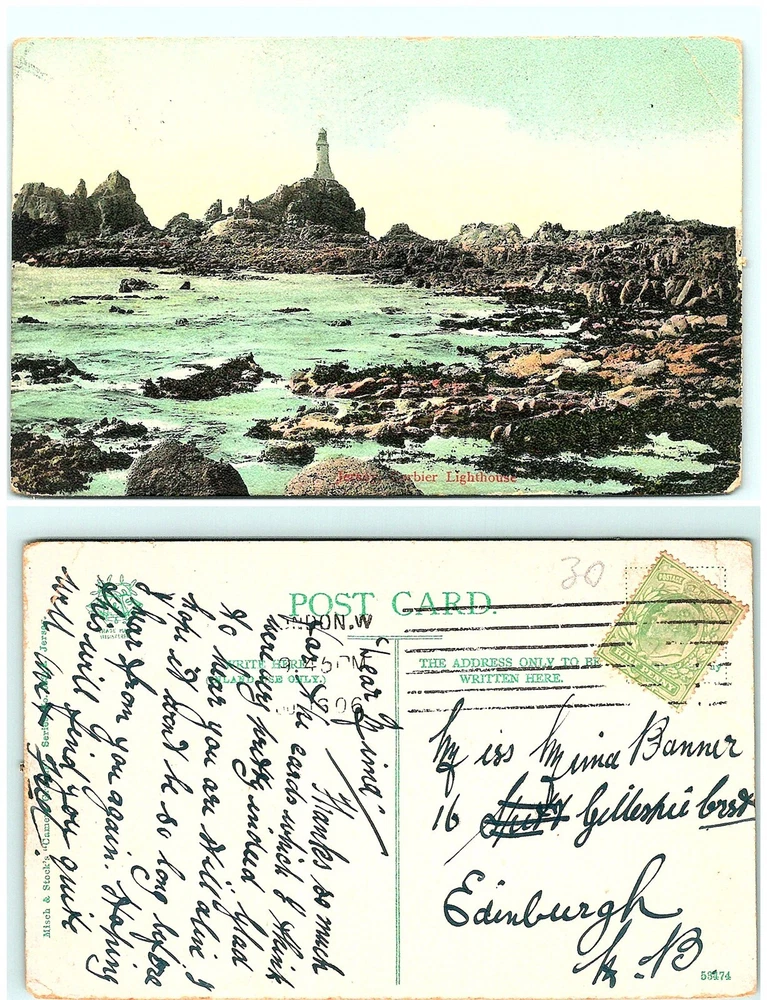 Jersey Corbier Lighthouse
POST CARD.
30
POSTAGE
NDON.W
9.45 PM
06
WRITE HERE
(INLAND USE ONLY.)
THE ADDRESS ONLY TO BE
WRITTEN HERE.
Miss Mima Banner
16 Gillespie Crest
Edinburgh
N.B
53474
Misch & Stock's "Cameo" Series
Jersey
"Dear Mima"
Thanks so much
for the cards which I think
very pretty indeed Glad
to hear you are still alive &
hope it won't be so long before
I hear from you again. Hoping
this will find you quite
well